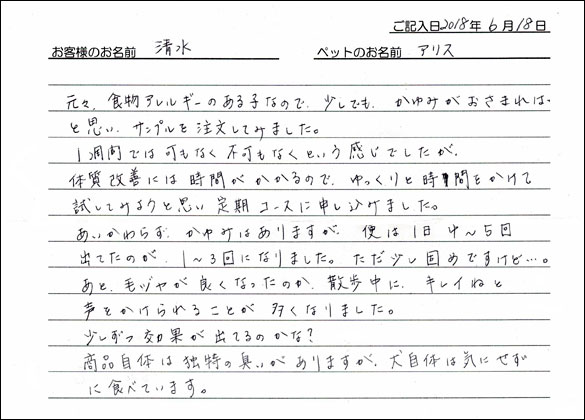 ご記入日2018年6月18日
お客様のお名前 清水 ペットのお名前 アリス
元々、食物アレルギーのある子なので、少しでも、かゆみがおさまれば
と思い、サンプルを注文してみました。
1週間では可もなく不可もなくという感じでしたが、
体質改善には時間がかかるので、ゆっくりと時間をかけて
試してみようと思い定期コースに申し込みました。
あいかわらず、かゆみはありますが、便は1日4～5回
出てたのが、1～3回になりました。ただ少し固めですけど…。
あと、毛ヅヤが良くなったのか、散歩中に、キレイねと
声をかけられることが多くなりました。
少しずつ効果が出てるのかな?
商品自体は独特の臭いがありますが、犬自体は気にせず
に食べています。